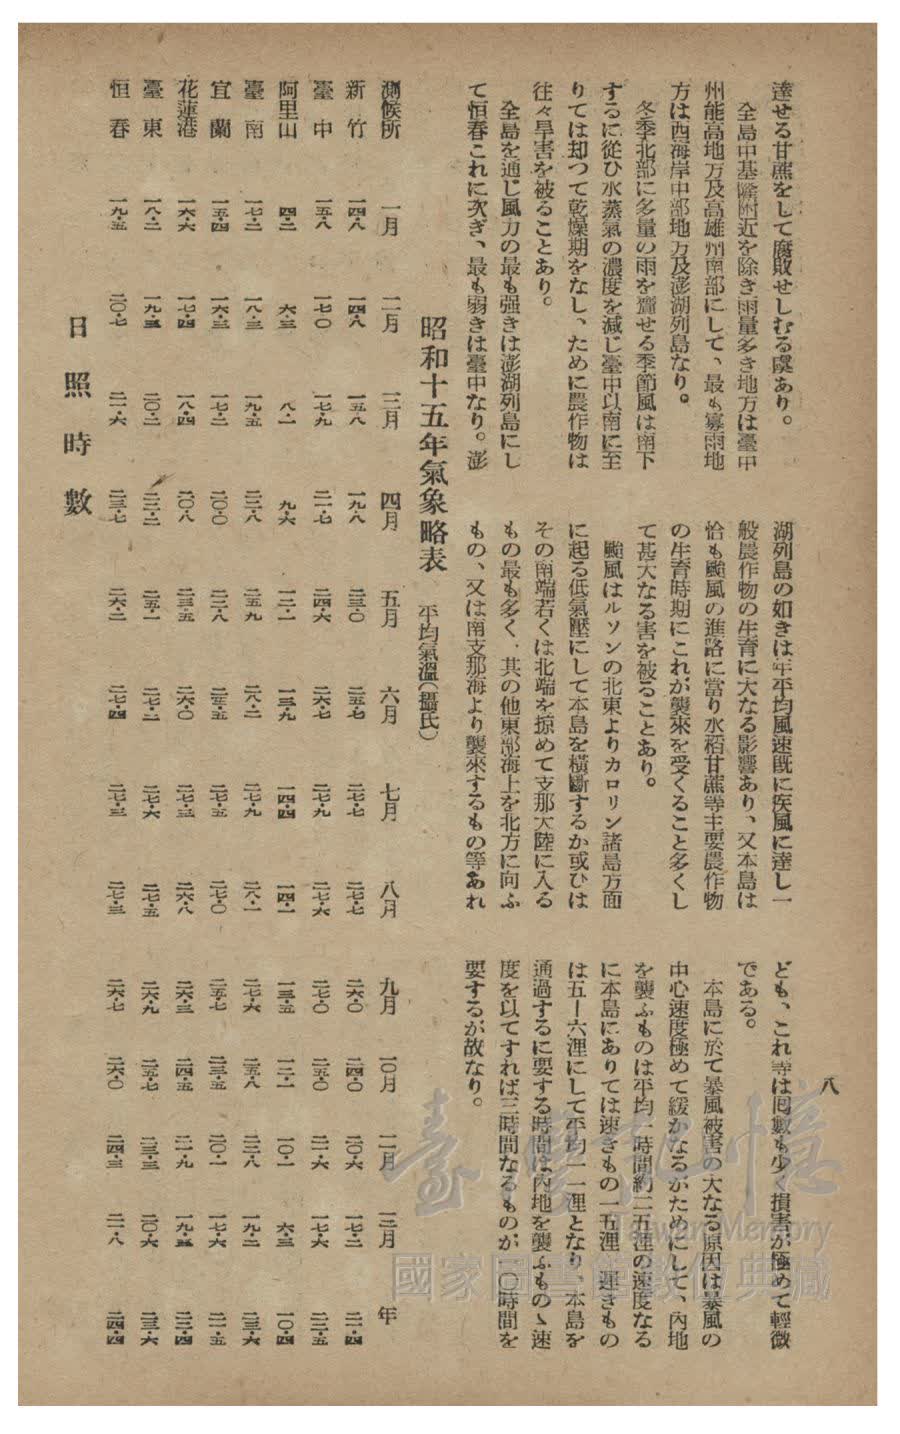 八
達せる甘蔗をして腐敗せしむる虞あり。
全島中基隆附近を除き雨量多き地方は臺中
州能高地方及高雄州南部にして、最も寡雨地
方は西海岸中部地方及澎湖列島なり。
冬季北部に多量の雨を齎せる季節風は南下
するに從ひ水蒸氣の濃度を減じ臺中以南に至
りては却つて乾燥期をなし、ために農作物は
往々旱害を被ることあり。
全島を通じ風力の最も强きは澎湖列島にし
て恒春これに次ぎ、最も弱きは臺中なり。澎
湖列島の如きは年平均風速旣に疾風に達し一
般農作物の生育に大なる影響あり、又本島は
恰も颱風の進路に當り水稻甘蔗等主要農作物
の生育時期にこれが襲來を受くること多くし
て甚大なる害を被ることあり。
颱風はルソンの北東よりカロリン諸島方面
に起る低氣壓にして本島を橫斷するか或ひは
その南端若くは北端を掠めて支那大陸に入る
もの最も多く、其の他東部海上を北方に向ふ
もの、又は南支那海より襲來するもの等あれ
ども、これ等は囘數も少く損害が極めて輕微
である。
本島に於て暴風被害の大なる原因は暴風の
中心速度極めて緩かなるがためにして、內地
を襲ふものは平均一時間約二五浬の速度なる
に本島にありては速きもの一五浬 遲きもの
は五―六浬にして平均一一浬となり、本島を
通過するに要する時間は內地を襲ふものゝ速
度を以てすれば三時間なるものが一〇時間を
要するが故なり。
昭和十五年氣象略表 平均氣溫(攝氏)
測候所 一月 二月 三月 四月 五月 六月 七月 八月 九月 一〇月 一一月 一二月 年
新竹 一四・八 一四・八 一五・八 一九・八 二三・〇 二五・七 二七・七 二七・七 二六・〇 二四・〇 二〇・六 一七・二 二一・四
臺中 一五・八 一七・〇 一七・九 二一・七 二四・六 二六・七 二七・九 二七・六 二七・〇 二五・〇 二一・六 一七・六 二二・五
阿里山 四・二 六・三 八・一 九・六 一二・一 一三・九 一四・四 一四・一 一三・五 一二・一 一〇・一 六・三 一〇・四
臺南 一七・二 一八・三 一九・五 二二・八 二五・九 二八・二 二七・九 二八・一 二七・六 二五・八 二二・八 一九・二 二三・六
宜蘭 一五・四 一六・三 一七・二 二〇・〇 二二・八 二五・五 二七・五 二七・〇 二五・七 二三・五 二〇・一 一七・六 二一・五
花蓮港 一六・六 一七・四 一八・四 二〇・八 二三・五 二六・〇 二七・三 二六・八 二六・三 二四・五 二一・九 一九・五 二二・四
臺東 一八・二 一九・三 二〇・二 二二・二 二五・一 二七・二 二七・六 二七・五 二六・九 二五・七 二三・三 二〇・六 二三・六
恒春 一九・五 二〇・七 二一・六 二三・七 二六・二 二七・四 二七・三 二七・三 二六・七 二六・〇 二四・三 二一・八 二四・四
日照時數
臺灣記憶
Taiwan Memory
國家圖書館數位典藏